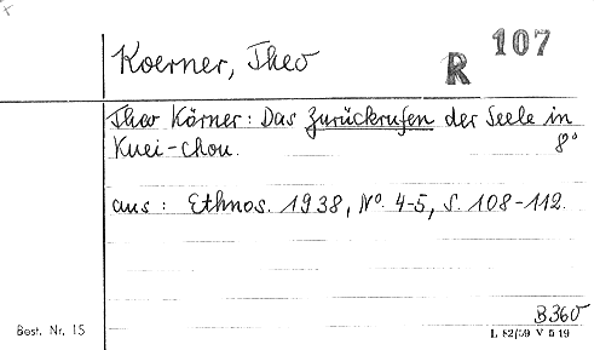 Koerner, Theo
R 107
Theo Körner: Das Zurückrufen der Seele in
Kuei-chou. 8°
aus: Ethnos. 1938, N° 4-5, S. 108-112.
B360
Best. Nr. 15
L 82/59 V 5 19